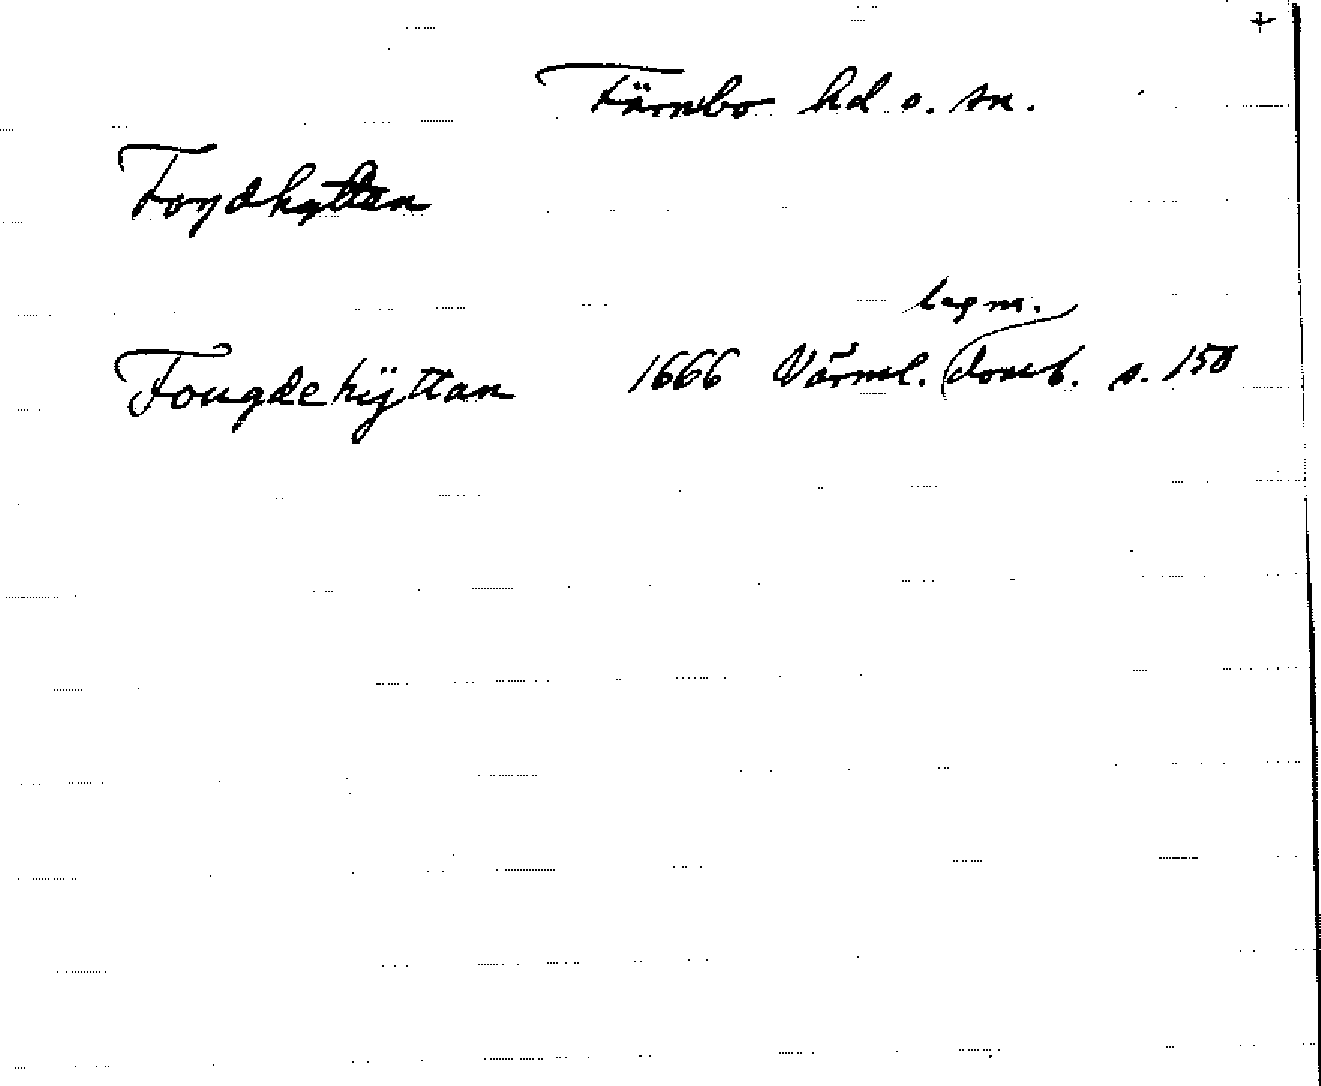 +
Färnbo hd o. sn.
Fogdhyttan
lagm.
Fougdehÿttan 1666 Värml. domb. s. 150